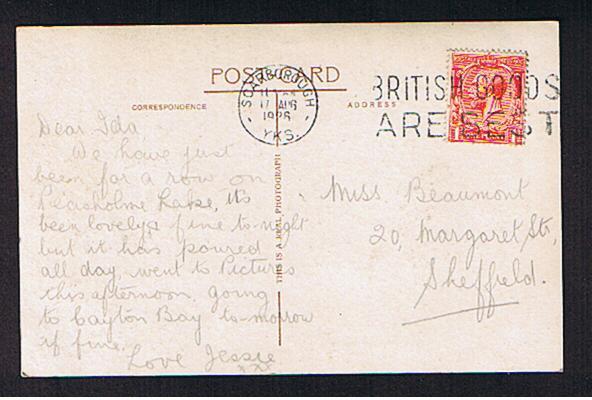 POST CARD
CORRESPONDENCE
ADDRESS
SCARBOROUGH
17 AUG
1926
YKS.
BRITISH GOODS
ARE BEST
THIS IS A REAL PHOTOGRAPH
Dear Ida
We have just
been for a row on
Peasholme Lake, it's
been lovely & fine to-night
but it has poured
all day, went to Pictures
this afternoon, going
to Cayton Bay to-morrow
if fine.
Love Jessie
xxx
Miss Beaumont
20, Margaret St,
Sheffield.